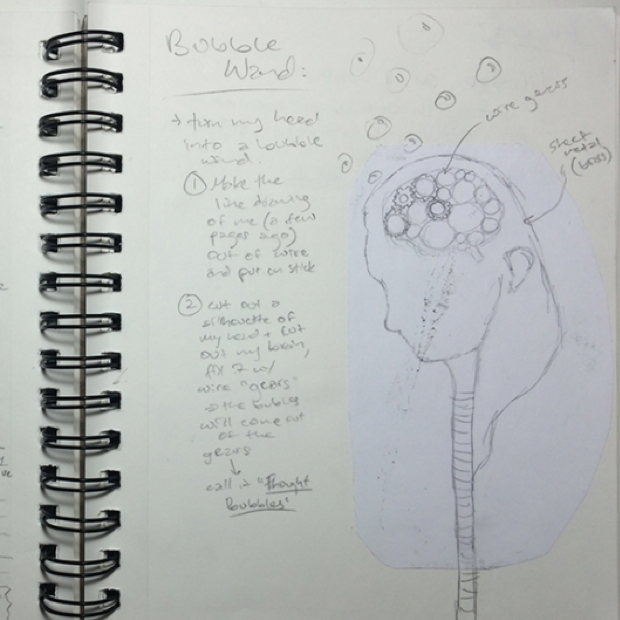 Bubble
Wand:
→ turn my head
into a bubble
wand.
① Make the
line drawing
of me (a few
pages ago)
out of wire
and put on stick
② cut out a
silhouette of
my head + cut
out my brain,
fill it w/
wire "gears"
→ the bubbles
will come out
of the
gears
↓
call it "Thought
Bubbles"
wire gears
sheet
metal
(brass)